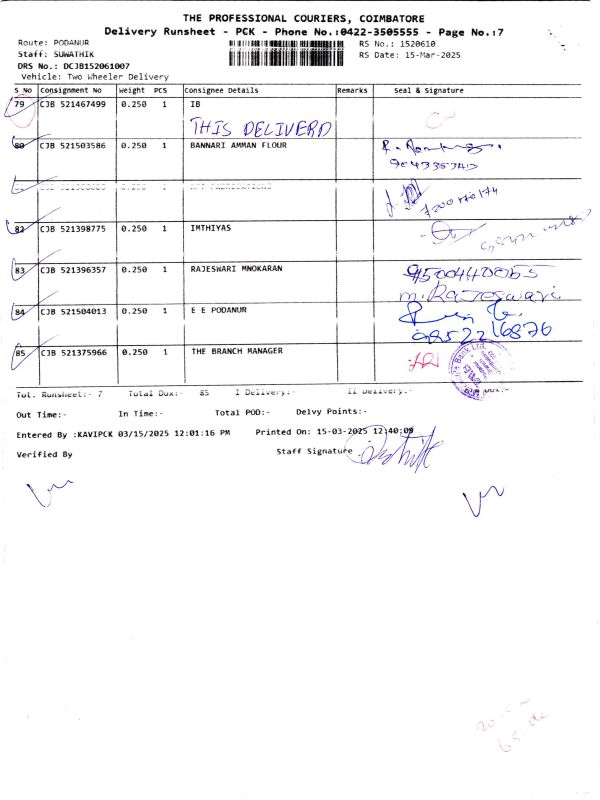 THE PROFESSIONAL COURIERS, COIMBATORE
Delivery Runsheet - PCK - Phone No.:0422-3505555 - Page No.:7
Route: PODANUR
RS No.: 1520610
Staff: SUWATHIK
RS Date: 15-Mar-2025
DRS No.: DCJB152061007
Vehicle: Two Wheeler Delivery
S_No Consignment No Weight PCS Consignee Details Remarks Seal & Signature
79 CJB 521467499 0.250 1 IB
THIS DELIVERD
80 CJB 521503586 0.250 1 BANNARI AMMAN FLOUR
0.250 1
82 CJB 521398775 0.250 1 IMTHIYAS
83 CJB 521396357 0.250 1 RAJESWARI MNOKARAN
9500440065
M.RAJESWARI
84 CJB 521504013 0.250 1 E E PODANUR
9852216876
85 CJB 521375966 0.250 1 THE BRANCH MANAGER
Bank Ltd.
Tot. Runsheet:- 7 Total Dox:- 85 I Delivery:- II Delivery:-
Out Time:- In Time:- Total POD:- Delvy Points:-
Entered By :KAVIPCK 03/15/2025 12:01:16 PM Printed On: 15-03-2025 12:40:09
Verified By Staff Signature